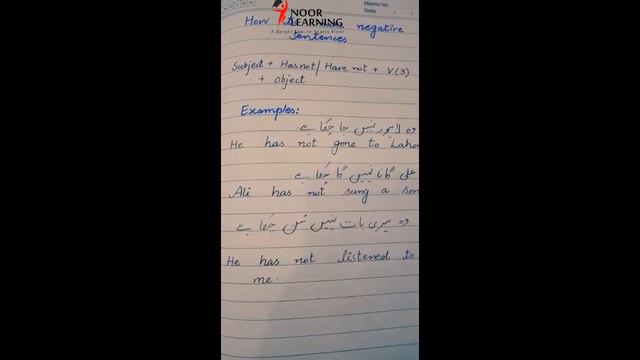 NOOR
LEARNING
A Better Future Starts Here
Memo No.
Date / /
How negative
Sentences
Subject + Has not / Have not + V(3)
+ object
Examples:
وہ لاہور نہیں جا چکا ہے۔
He has not gone to Lahor
علی گانا نہیں گا چکا ہے۔
Ali has not sung a son
وہ میری بات نہیں سن چکا ہے
He has not listened to
me.